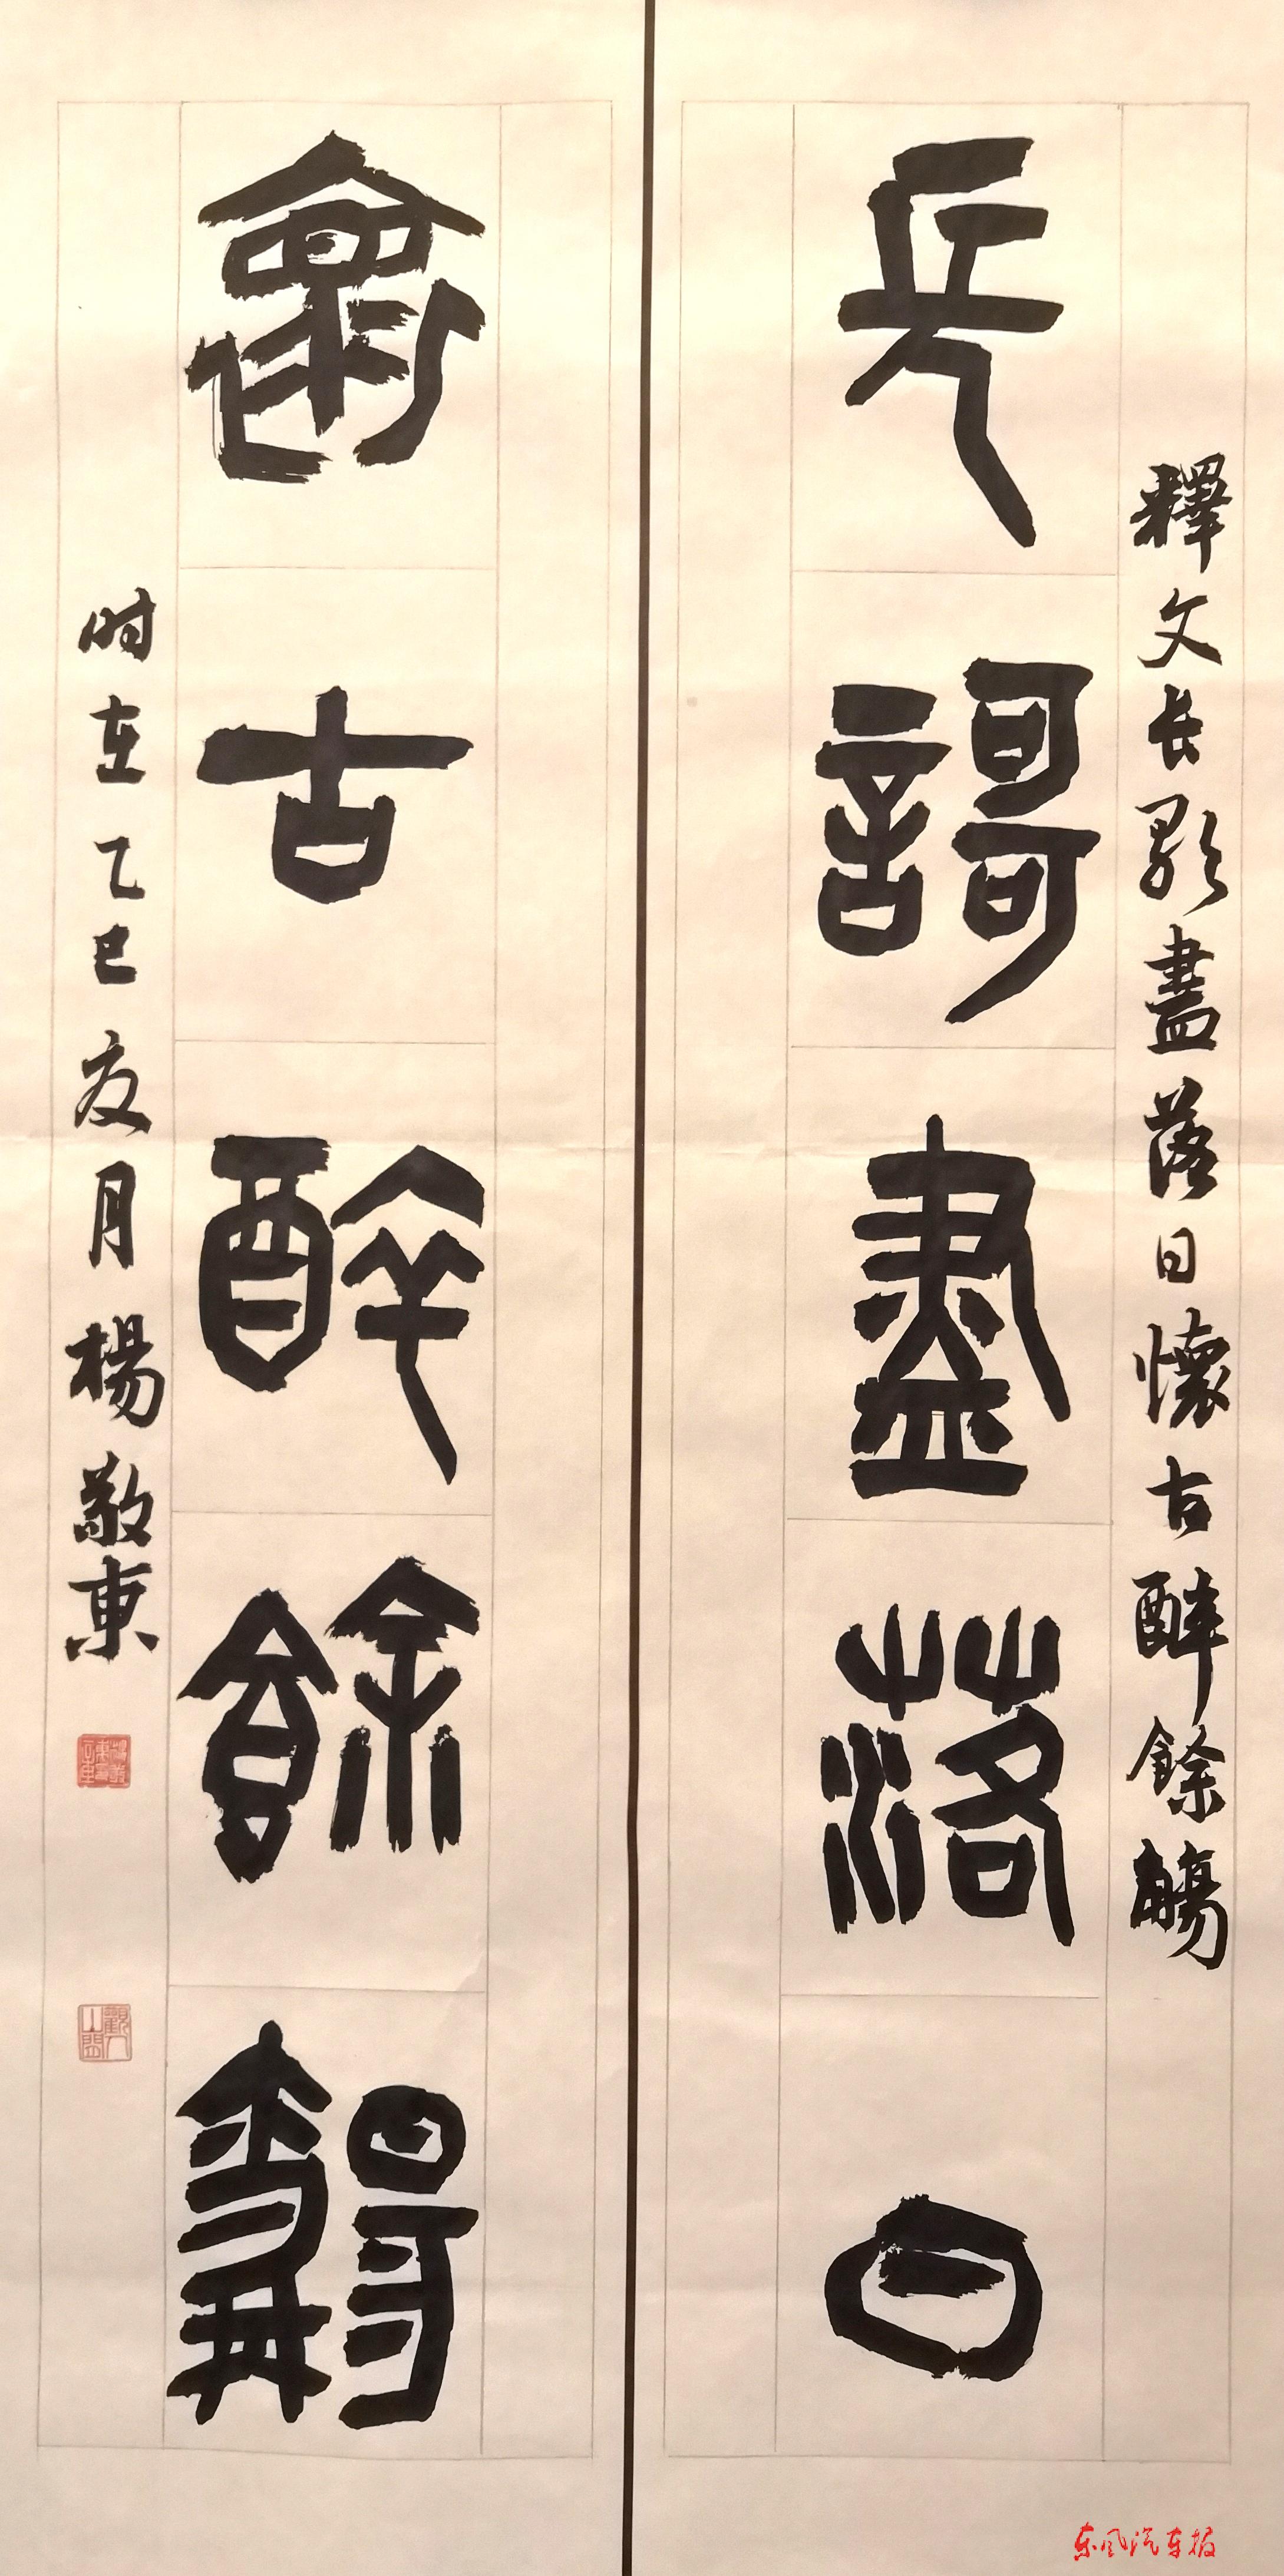 釋文长歌盡落日懷古醉餘觴
长謌盡落日
褱古醉餘觴
时在乙巳夏月楊敬東
东风汽车报